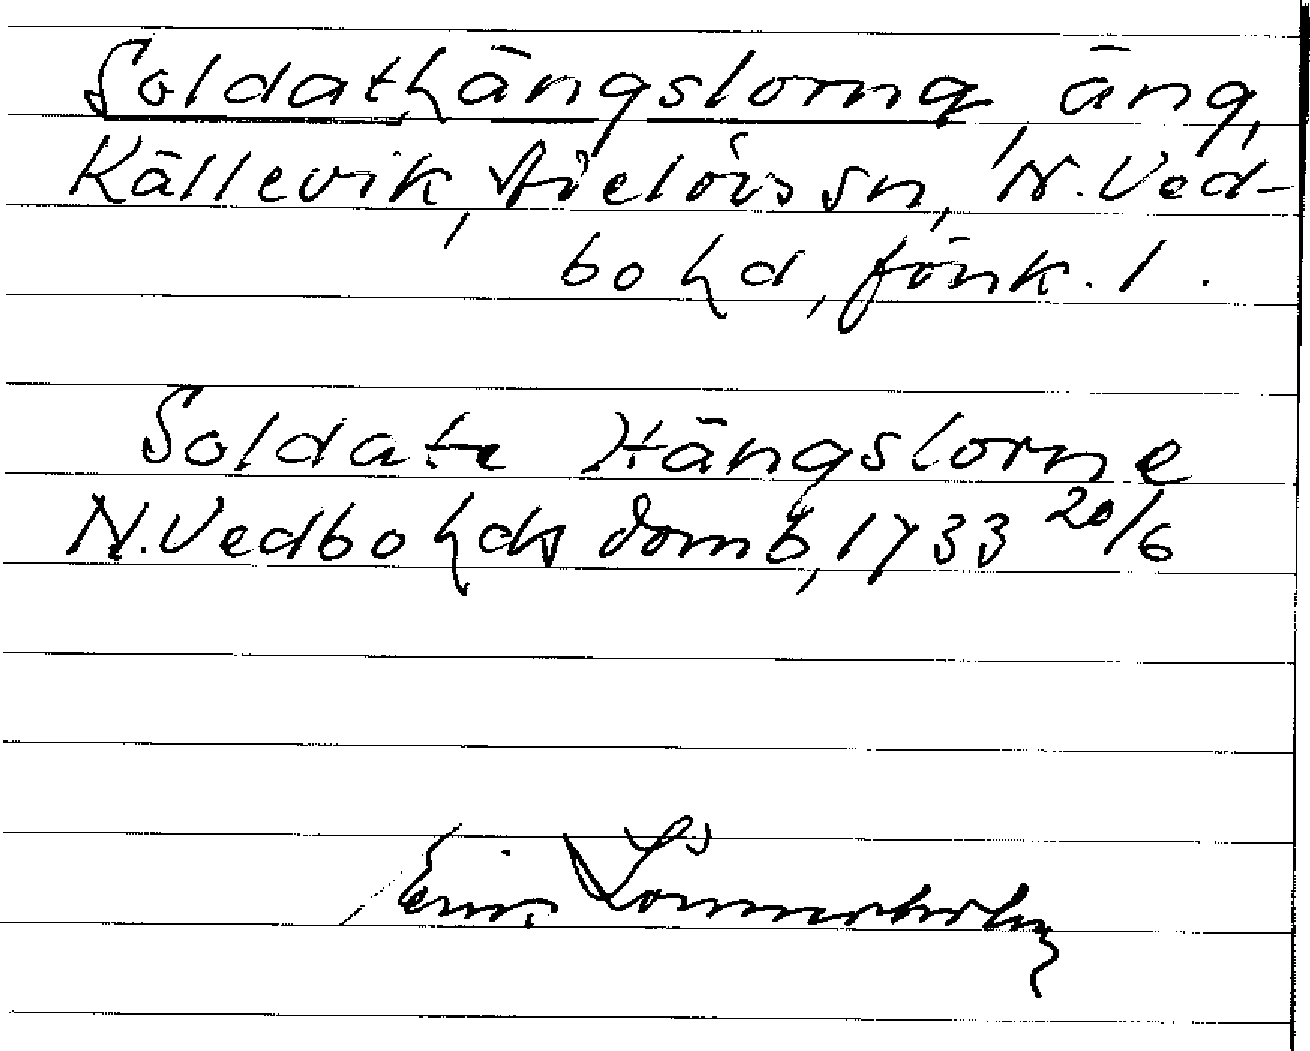 Soldathängslorna, äng,
Källevik, Adelövs sn, N. Ved-
bo hd, Jönk. l.
Soldate Hängslorne
N. Vedbo hds domb, 1733 20/6
Erik Lönnerholm